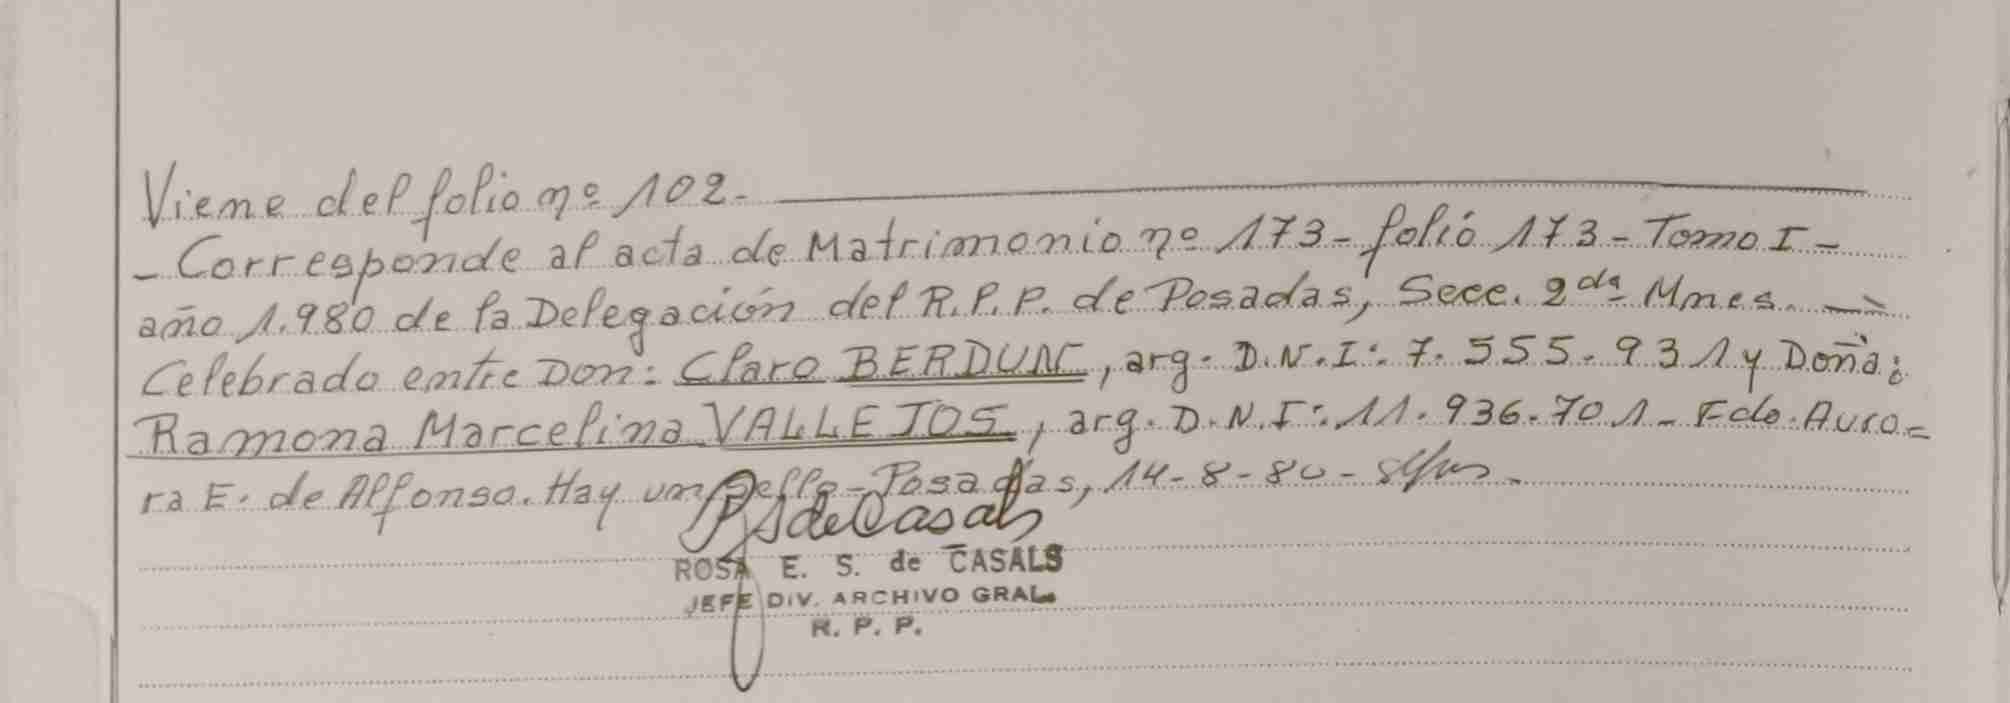 Viene del folio nº 102.-
- Corresponde al acta de Matrimonio nº 173 - folio 173 - Tomo I -
año 1.980 de la Delegación del R.P.P. de Posadas, Secc. 2da Mnes. -
Celebrado entre Don: Claro BERDUN, arg. D.N.I: 7.555.931 y Doña:
Ramona Marcelina VALLEJOS, arg. D.N.I: 11.936.701 - Fdo. Auro=
ra E. de Alfonso. Hay un sello - Posadas, 14-8-80 -
RSdeCasals
ROSA E. S. de CASALS
JEFE DIV. ARCHIVO GRAL.
R. P. P.